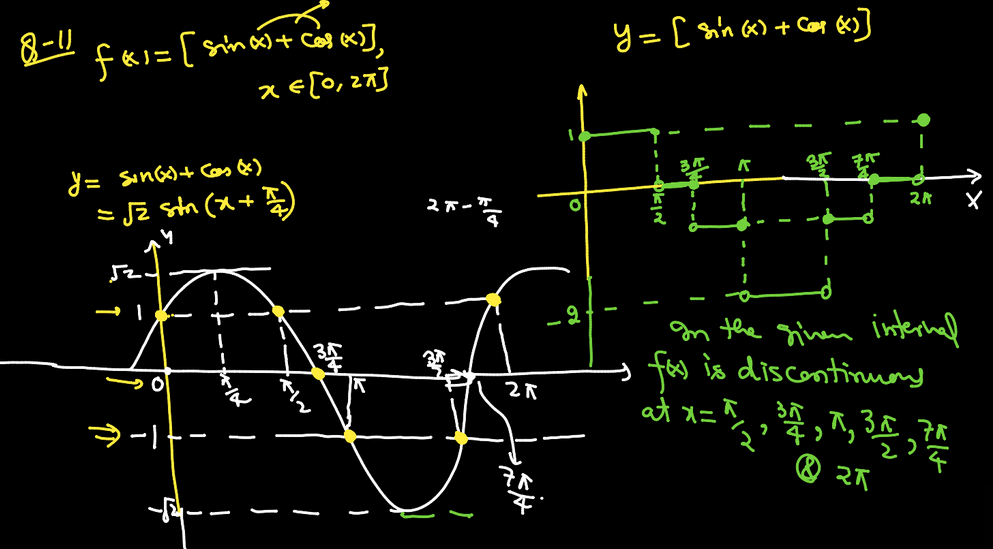 Q-11 f(x) = [sin(x) + cos(x)],
x ∈ [0, 2π]
y = sin(x) + cos(x)
= √2 sin(x + π/4)
2π - π/4
y
√2
1
0
π/4
π/2
3π/4
π
2π
-1
7π/4
-√2
y = [sin(x) + cos(x)]
1
0
π/2
3π/4
π
3π/2
7π/4
2π
X
-2
In the given interval
f(x) is discontinuous
at x = π/2, 3π/4, π, 3π/2, 7π/4
& 2π